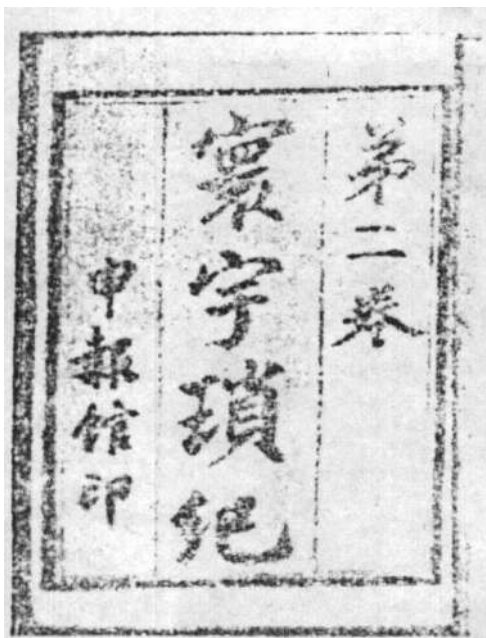 第二卷
寰宇瑣紀
申報館印